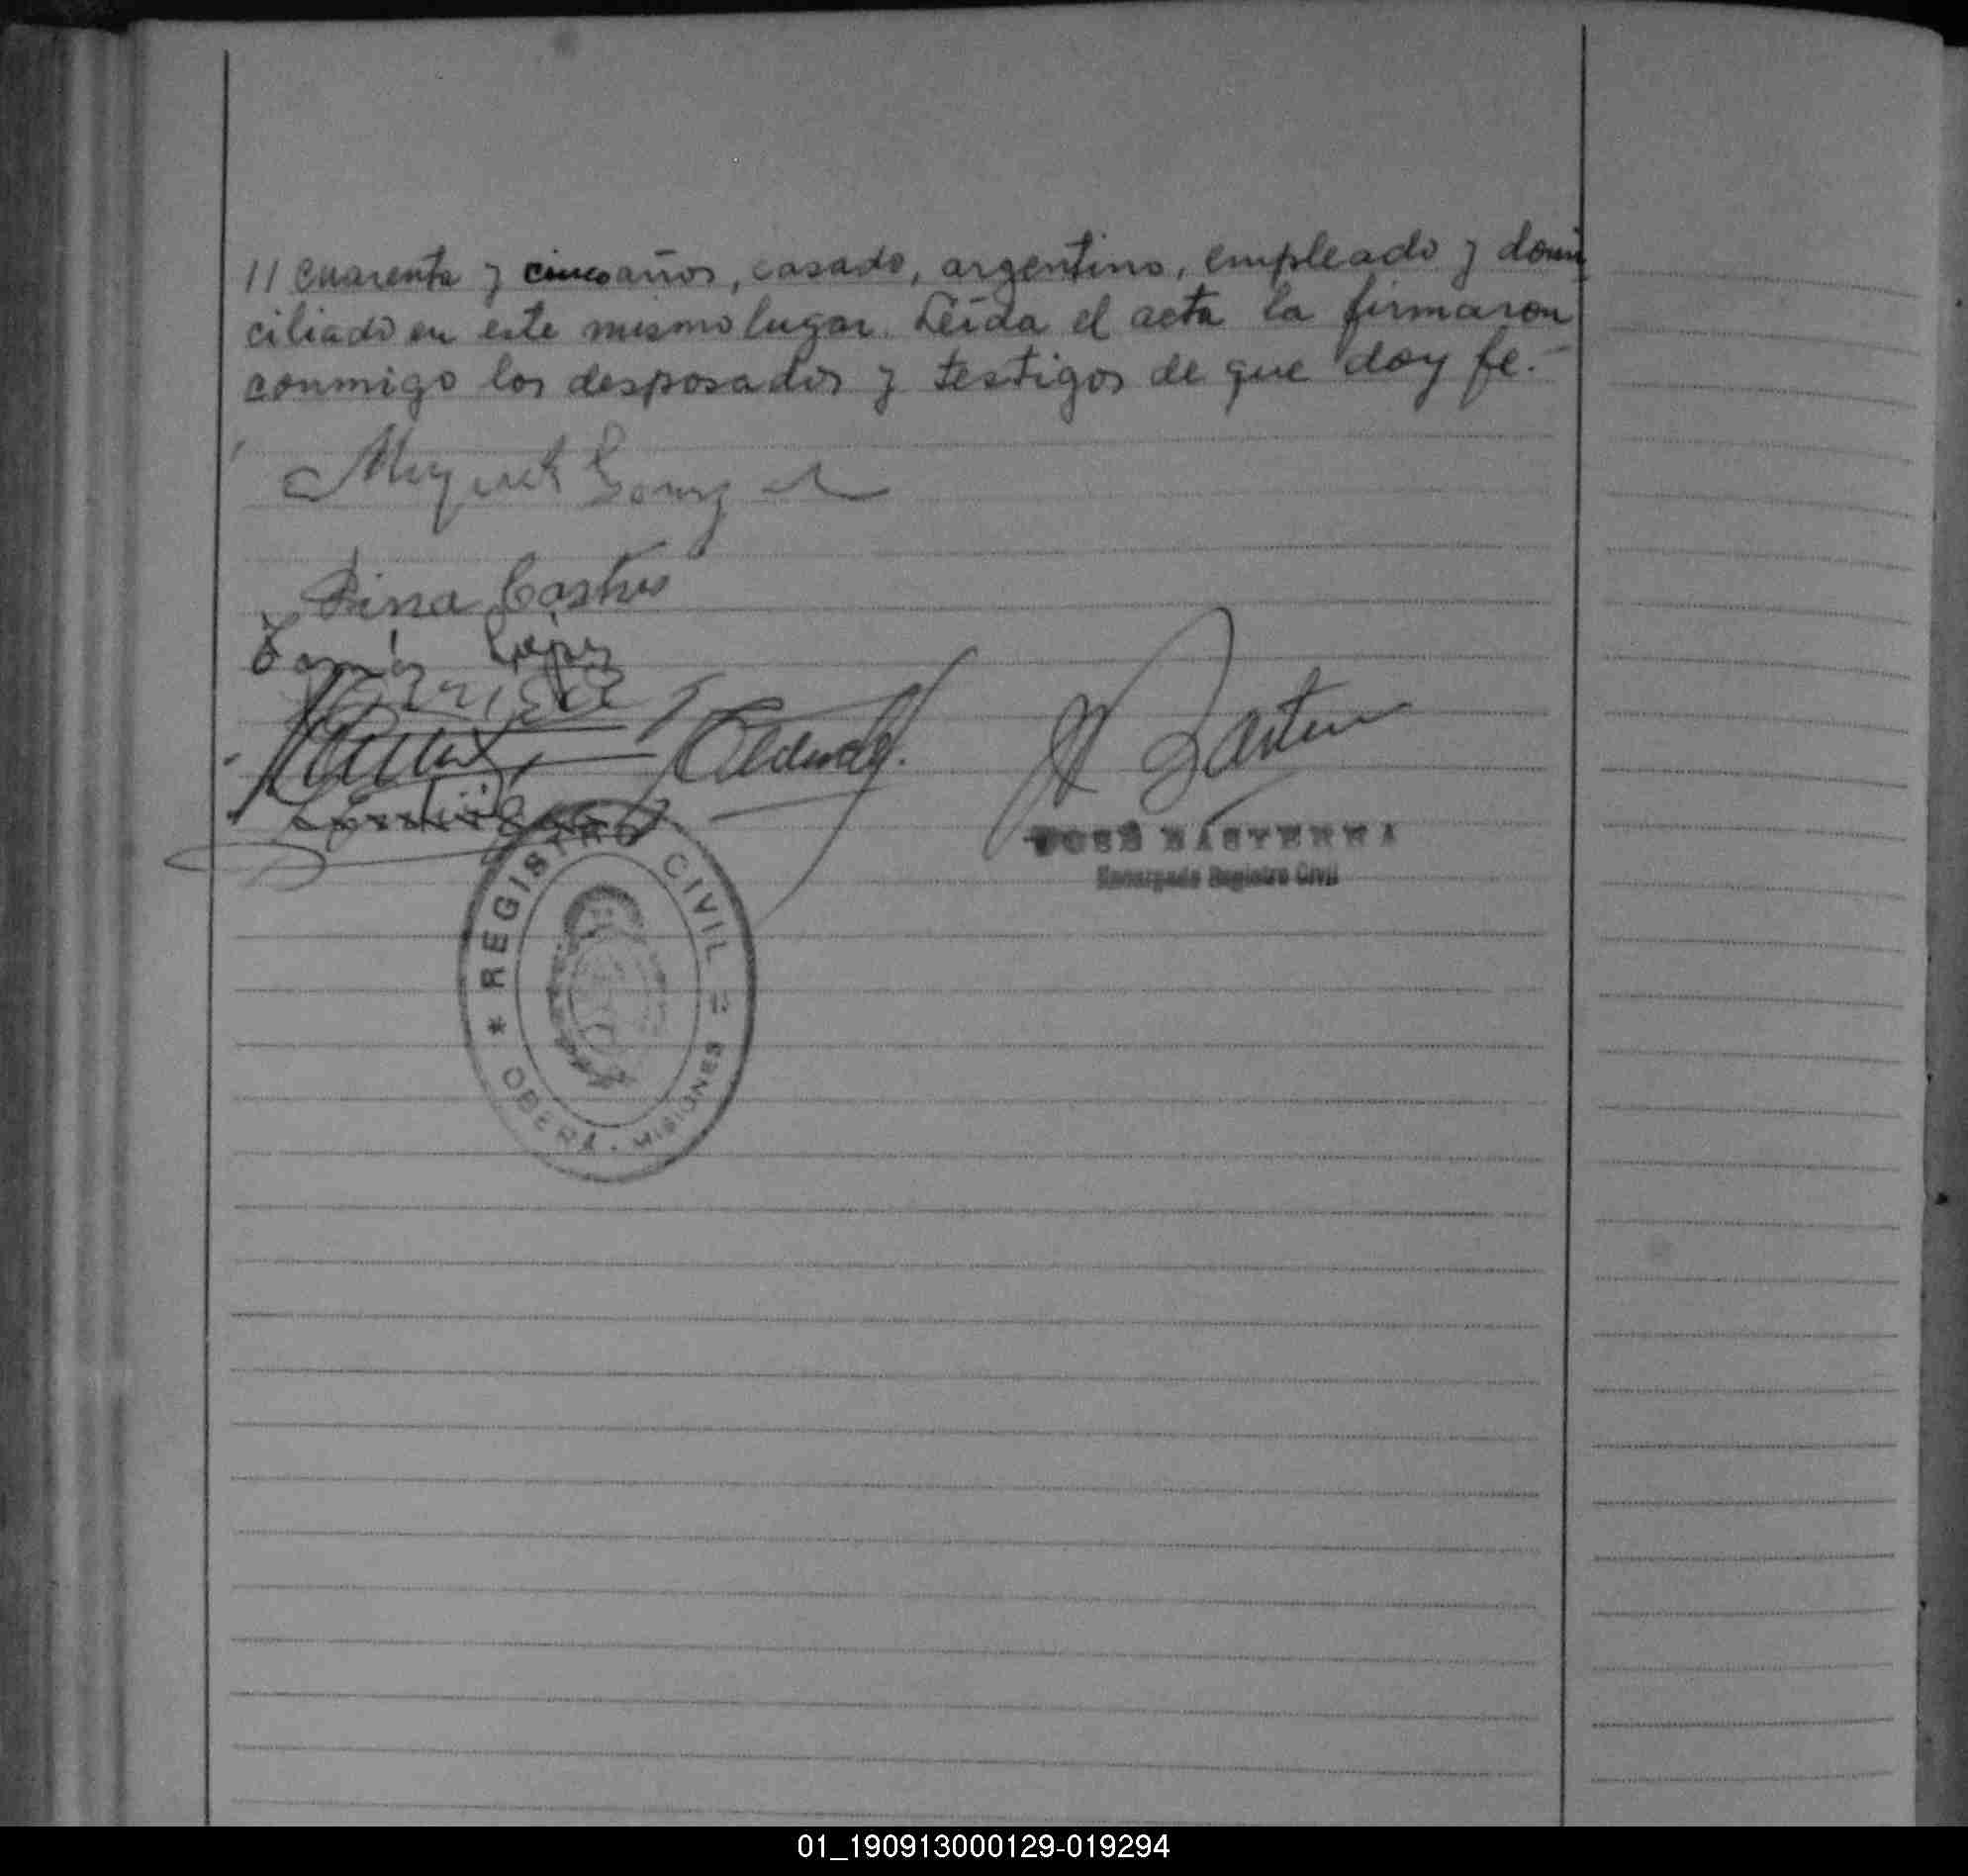 // cuarenta y cinco años, casado, argentino, empleado y domi
ciliado en este mismo lugar. Leída el acta la firmaron
conmigo los desposados y testigos de que doy fe.-
Miguel Gonz
Rina Castro
Tomás López
JOSÉ BASTERRA
Encargado Registro Civil
* REGISTRO CIVIL
OBERÁ - MISIONES
01_190913000129-019294